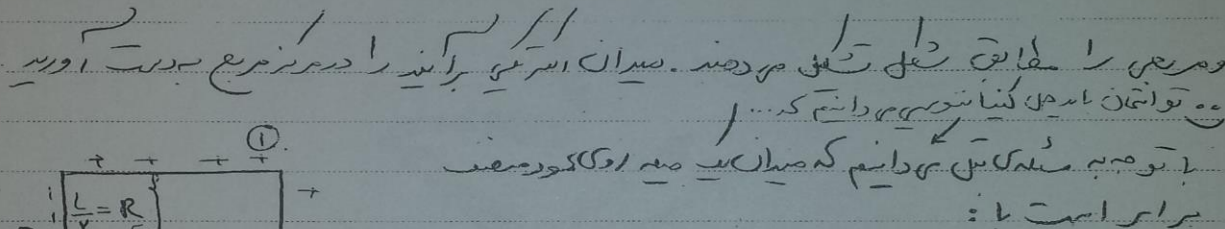 ومربعی را مطابق شکل تشکیل می دهند . میدان الکتریکی برآیند را در مرکز مربع به دست آورید .
تو امتحان باید حل کنیم بنویسیم می دانیم که ...
با توجه به مسئله ی قبل می دانیم که میدان یک میله روی عمود منصف
برابر است با :
①
+ + + +
L/2 = R
+